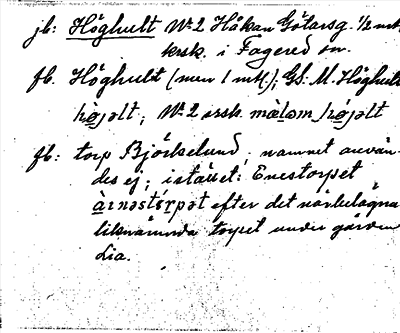 jb: Höghult No 2 Håkan Götarsg. 1/2 mtl
krsk. i Fagered sn.
fb. Höghult (men 1 mtl); GS: M. Höghult
hö̱jəlt; No 2 ersk. mæ̱lom hö̱jəlt
fb: torp Björkelund, namnet använ-
des ej; i stället: Enestorpet
ä̱rnəstɔ̱rpət efter det närbelägna
liknämnda torpet under gården
Lia.